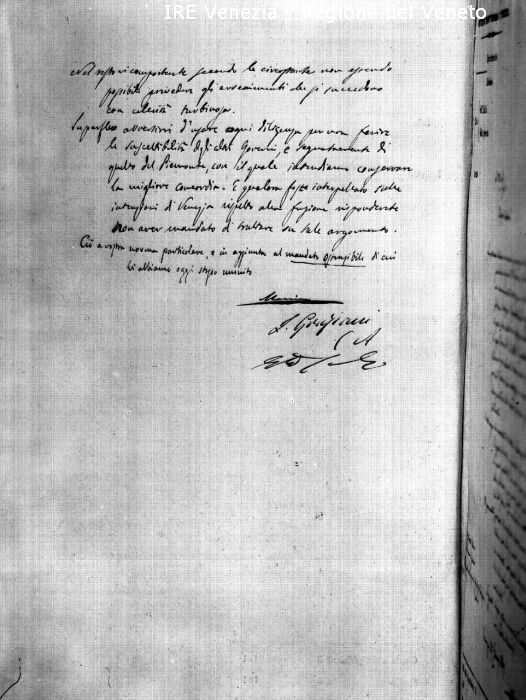 IRE Venezia e Regione del Veneto
Nel resto vi comportate secondo le circostanze non essendo
possibile prevedere gli avvenimenti che si succedono
con celerità turbinosa.
Superfluo avvertirvi d'usare ogni diligenza per non ferire
le suscettibilità degli altri Governi, e segnatamente di
quello del Piemonte, con il quale intendiamo conservare
la migliore concordia. E qualora foste interpellato sulle
intenzioni di Venezia rispetto alla fusione risponderete
non aver mandato di trattare su tale argomento.
Ciò a vostra norma particolare, e in aggiunta al mandato ostensibile di cui
vi abbiamo oggi stesso munito
Manin
L. Graziani